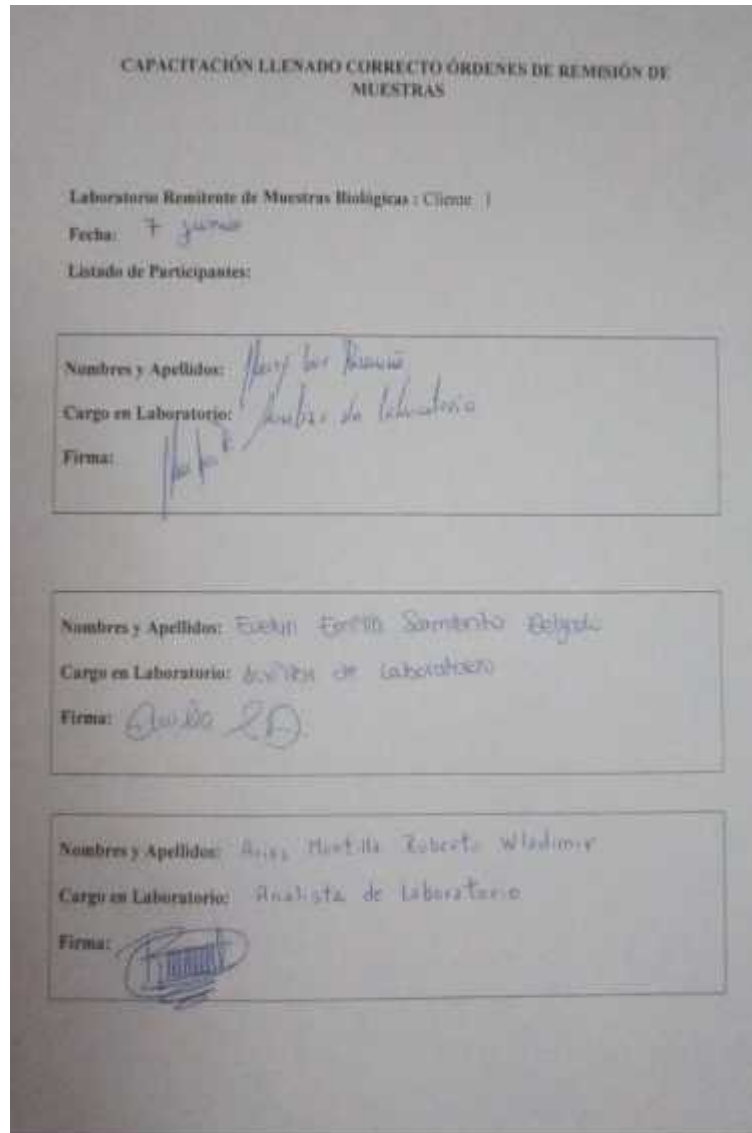 CAPACITACIÓN LLENADO CORRECTO ÓRDENES DE REMISIÓN DE
MUESTRAS
Laboratorio Remitente de Muestras Biológicas : Cliente 1
Fecha: 7 junio
Listado de Participantes:
Nombres y Apellidos:
Cargo en Laboratorio: de laboratorio
Firma:
Nombres y Apellidos: Evelyn Sarmiento Delgado
Cargo en Laboratorio: de Laboratorio
Firma:
Nombres y Apellidos: Roberto Wladimir
Cargo en Laboratorio: Analista de Laboratorio
Firma: